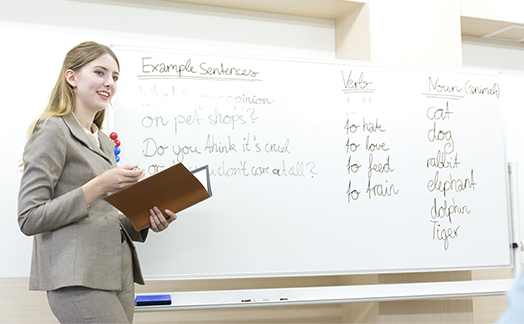 Example Sentences
opinion
on pet shops?
Do you think it's cruel
or don't care at all?
Verb
to hate
to love
to feed
to train
Noun (animals)
cat
dog
rabbit
elephant
dolphin
Tiger